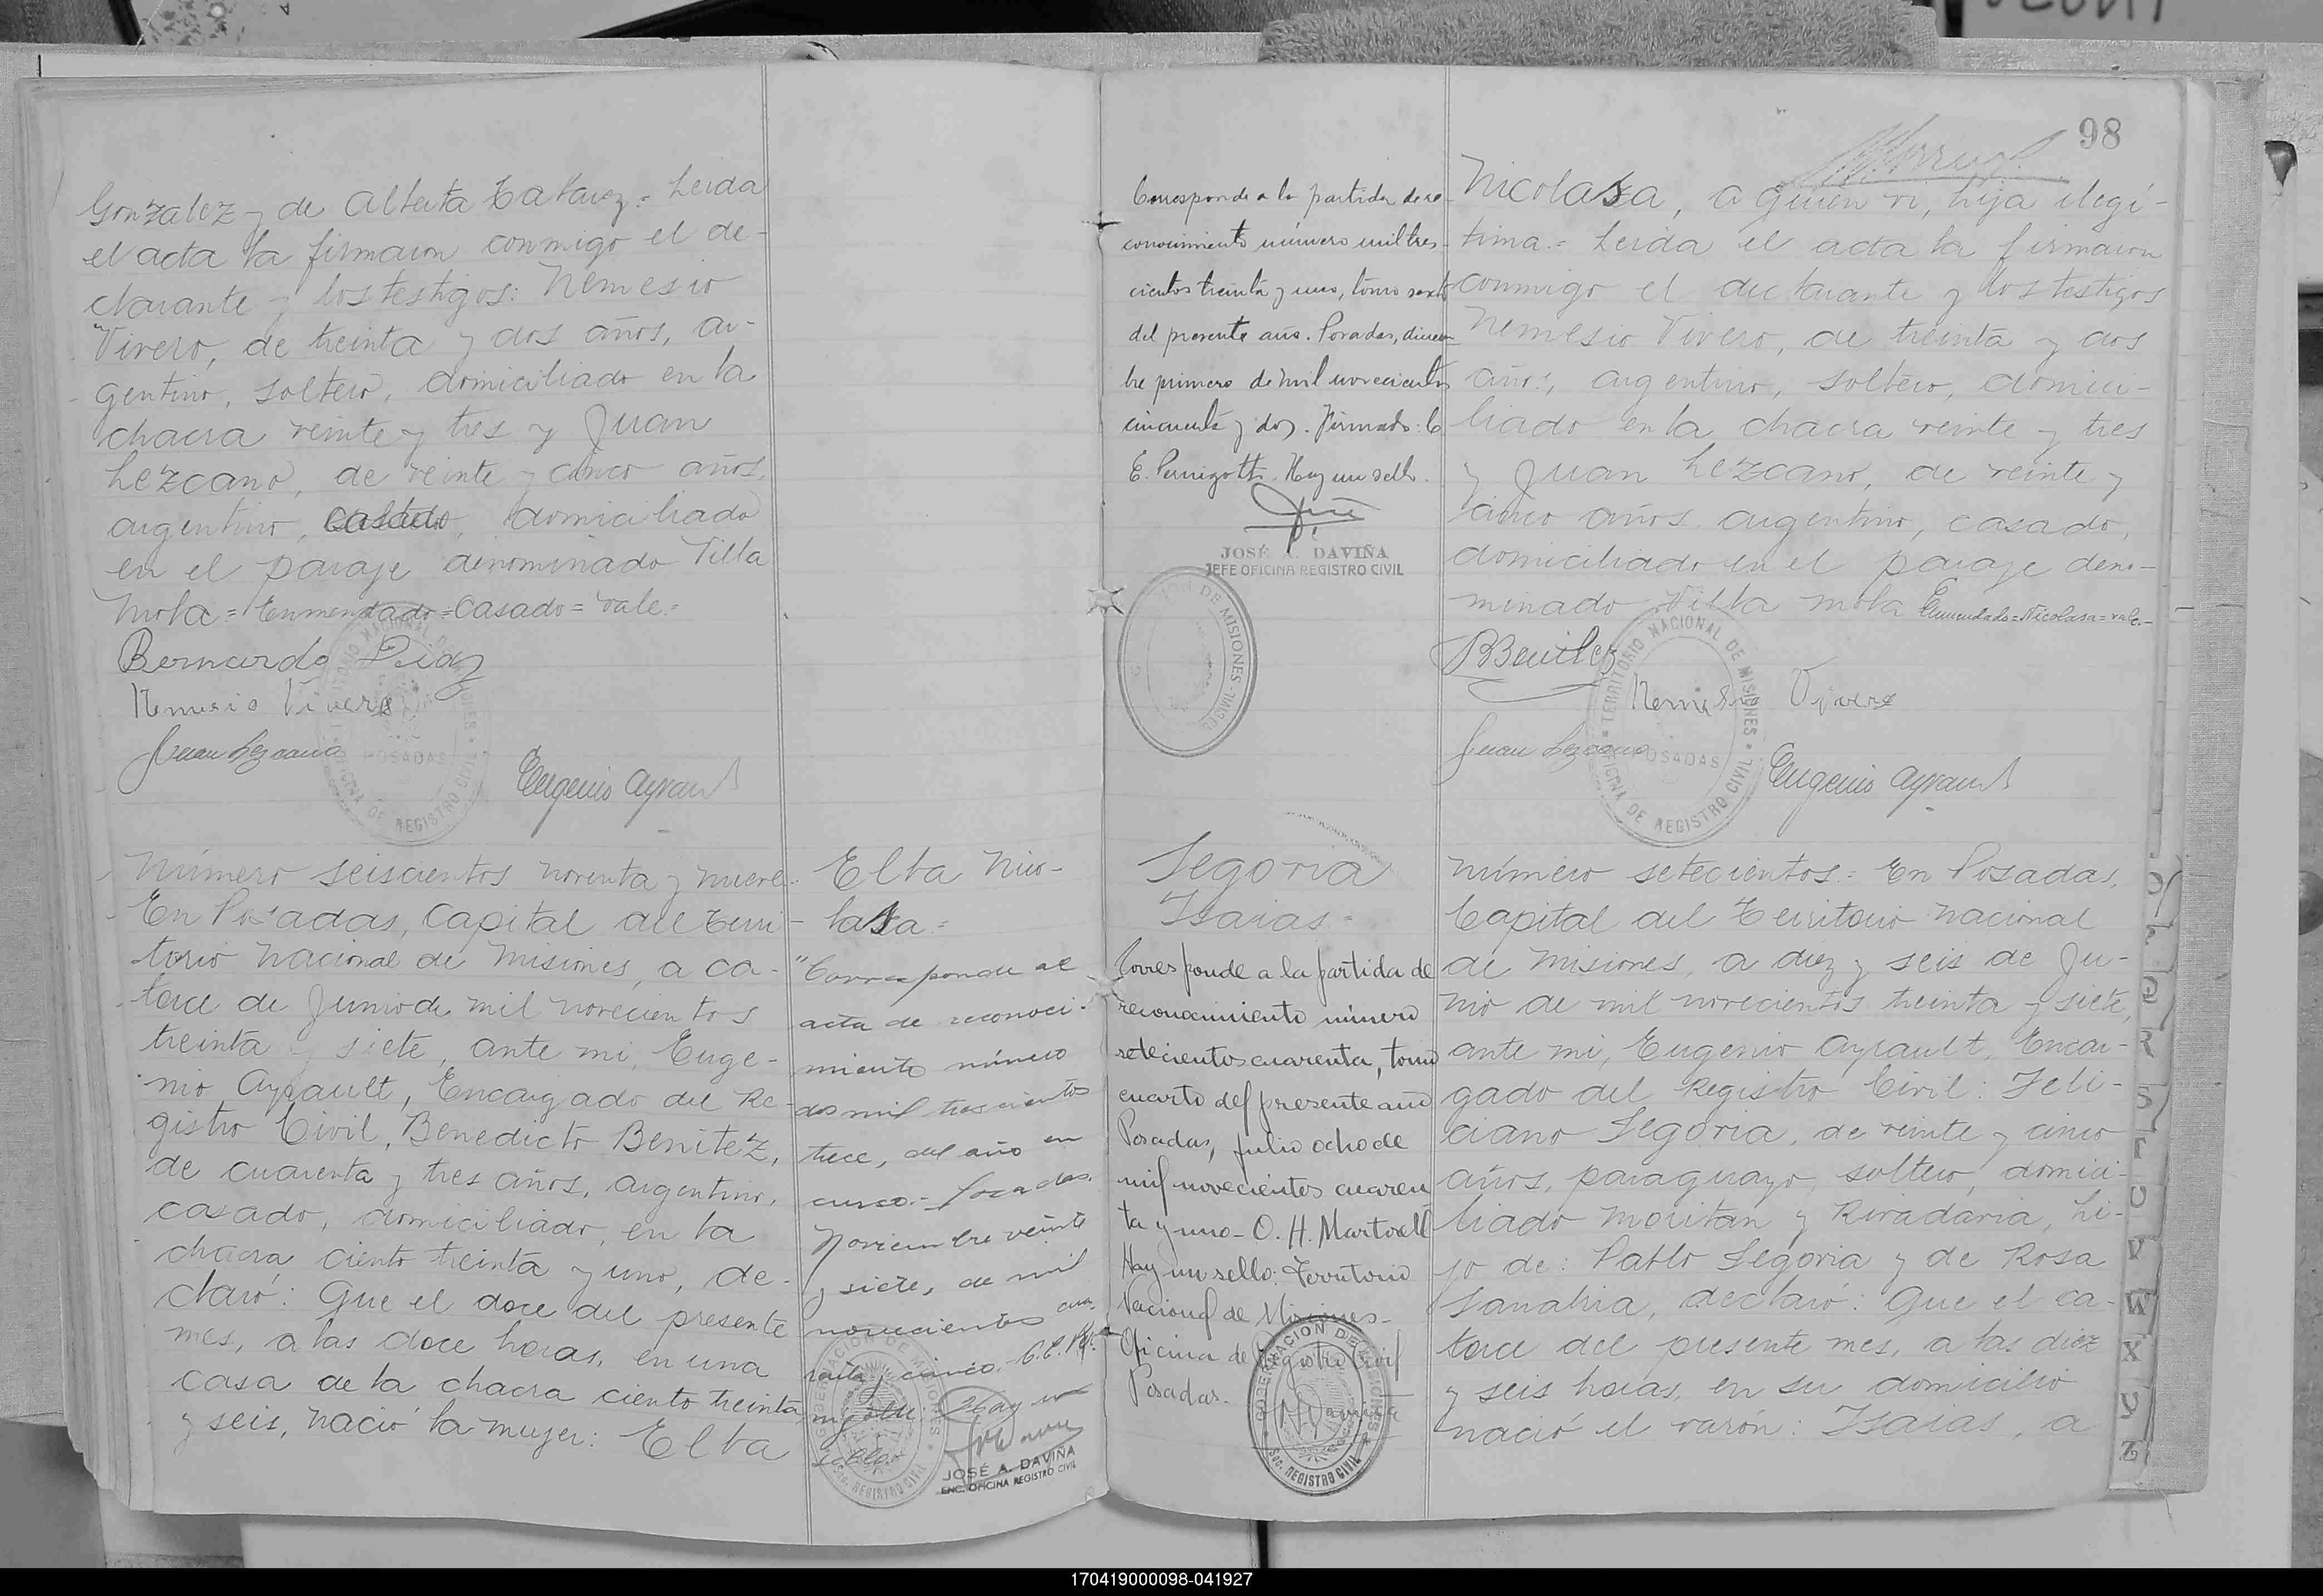 Gonzalez y de Alberta Cabarez.= Leida
el acta la firmaron conmigo el de-
clarante y los testigos: Nemesio
Vivero, de treinta y dos años, ar-
gentino, soltero, domiciliado en la
chacra veinte y tres y Juan
Lezcano, de veinte y cinco años,
argentino, casado, domiciliado
en el paraje denominado Villa
Mola = Enmendado = casado = vale.=
Bernardo Diaz
Nemesio Vivero
Juan Lezcano
Eugenio Ayrault
TERRITORIO NACIONAL DE MISIONES
POSADAS
OFICINA DE REGISTRO CIVIL
Número seiscientos noventa y nueve.
En Posadas, Capital del Terri-
torio Nacional de Misiones, a ca-
torce de Junio de mil novecientos
treinta y siete, ante mi, Euge-
nio Ayrault, Encargado del Re-
gistro Civil, Benedicto Benitez,
de cuarenta y tres años, argentino,
casado, domiciliado, en la
chacra ciento treinta y uno, de-
claró: Que el doce del presente
mes, a las doce horas, en una
casa de la chacra ciento treinta
y seis, nació la mujer: Elba
Elba Nico-
lasa =
"Corresponde al
acta de reconoci-
miento número
dos mil trescientos
trece, del año en
curso.- Posadas,
Noviembre veinte
y siete, de mil
novecientos cua-
renta y cinco.-
Hay un
sello.-
GOBERNACION DE MISIONES
SEC. REGISTRO CIVIL
JOSÉ A. DAVIÑA
ENC. OFICINA REGISTRO CIVIL
98
Corresponde a la partida de re-
conocimiento número mil tres-
cientos treinta y uno, tomo sexto
del presente año. Posadas, diciem-
bre primero de mil novecientos
cincuenta y dos. Firmado: C
E. Pernigotti. Hay un sello.
JOSÉ A. DAVIÑA
JEFE OFICINA REGISTRO CIVIL
DE MISIONES
Nicolasa, a quien vi, hija ilegí-
tima.= Leida el acta la firmaron
conmigo el declarante y los testigos
Nemesio Vivero, de treinta y dos
años, argentino, soltero, domici-
liado en la chacra veinte y tres
y Juan Lezcano, de veinte y
cinco años, argentino, casado,
domiciliado en el paraje deno-
minado Villa Mola Enmendado=Nicolasa=vale.-
BBenitez
Nemesio Vivero
Juan Lezcano
Eugenio Ayrault
TERRITORIO NACIONAL DE MISIONES
POSADAS
OFICINA DE REGISTRO CIVIL
Segovia
Isaias.=
Corresponde a la partida de
reconocimiento número
setecientos cuarenta, tomo
cuarto del presente año
Posadas, julio ocho de
mil novecientos cuaren
ta y uno - O. H. Martorell
Hay un sello: Territorio
Nacional de Misiones-
Oficina de Registro Civil
Posadas.-
GOBERNACION DE MISIONES
SEC. REGISTRO CIVIL
Número setecientos.= En Posadas,
Capital del Territorio Nacional
de Misiones, a diez y seis de Ju-
nio de mil novecientos treinta y siete,
ante mi, Eugenio Ayrault, Encar-
gado del Registro Civil: Feli-
ciano Segovia, de veinte y cinco
años, paraguayo, soltero, domici-
liado Moritan y Rivadavia, hi-
jo de: Pablo Segovia y de Rosa
Sanabria, declaró: Que el ca-
torce del presente mes, a las diez
y seis horas, en su domicilio
nació el varón: Isaias, a
Q
R
S
T
U
V
W
X
Y
Z
170419000098-041927